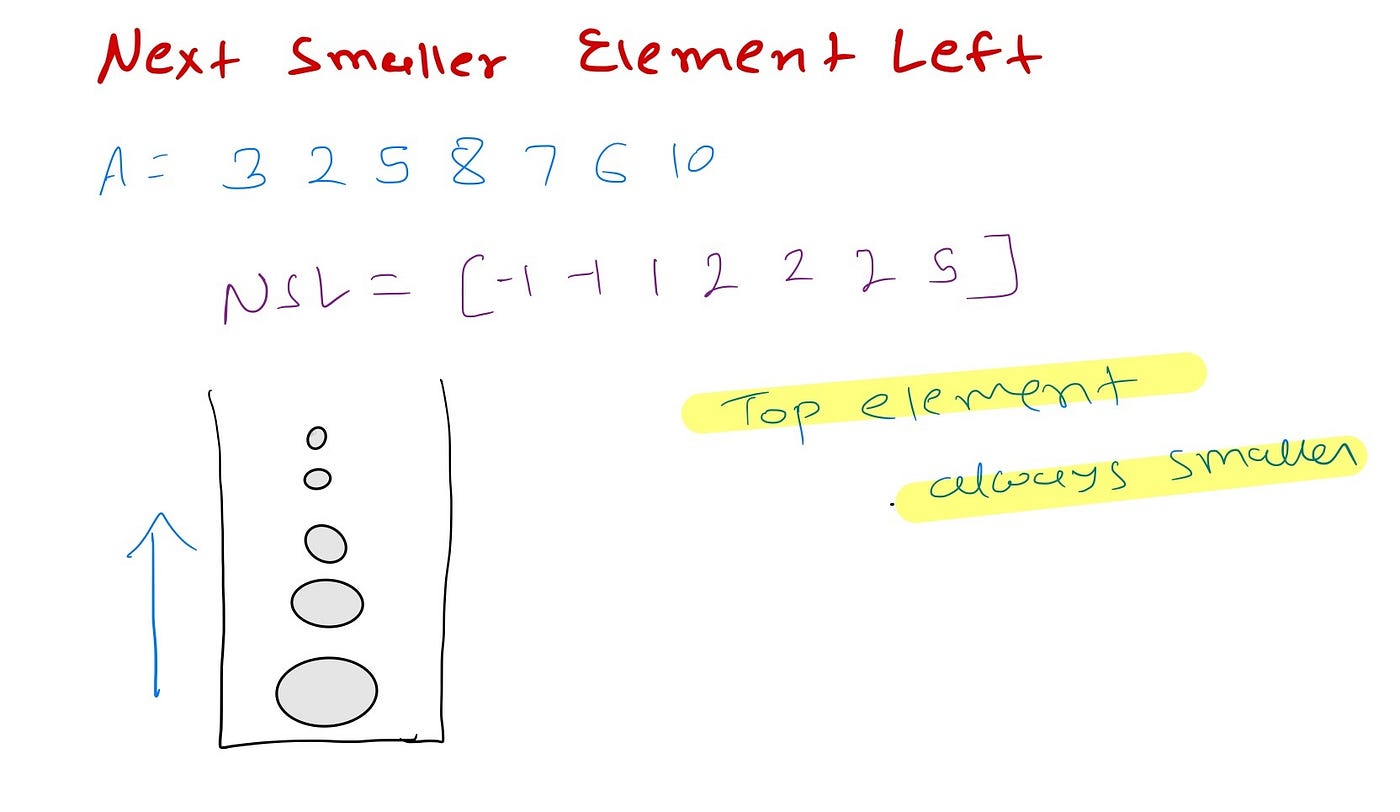 Next Smaller Element Left
A = 3 2 5 8 7 6 10
NSL = [-1 -1 1 2 2 2 5]
Top element
always smaller